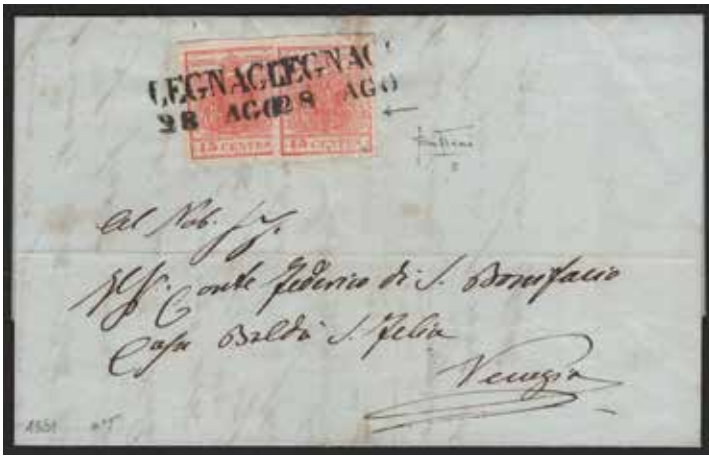 LEGNAGO LEGNAGO
28 AGO 28 AGO
15 CENTES 15 CENTES
Al Nob.
Conte Federico di S. Bonifacio
Casa Baldù S. Felia
Venezia
1851 n° 5